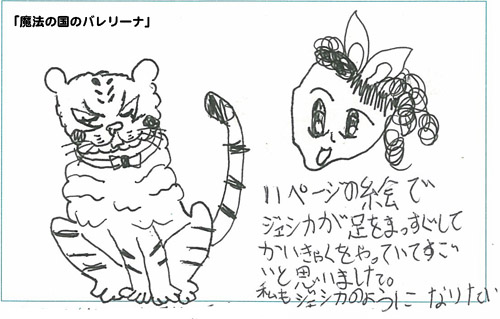 「魔法の国のバレリーナ」
11ページの絵で
ジェシカが足をまっすぐして
かいきゃくをやっていてすご
いと思いました。
私もジェシカのようになりたい